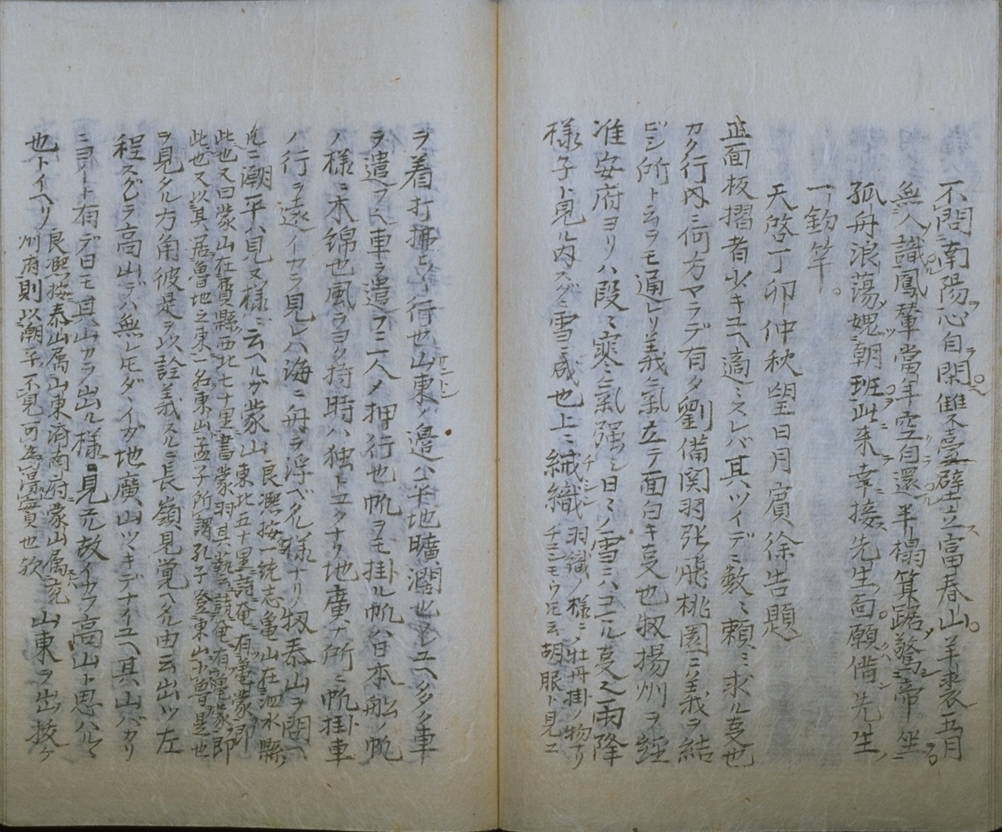 不問南陽心自閑雙臺壁立富春山羊裘五月
無人識鳳輦當年空自還半榻箕踞驚帝坐
孤舟浪蕩媿朝班此来幸接先生面願借先生
一釣竿。
天啓丁卯仲秋望日月賓徐告題
正面板摺者少キユヘ適ミスレバ其ツイデニ数ミ賴ミ求ル㕝也
カク行内ニ何方マラデ有タ劉備関羽張飛桃園ニ義ヲ結
ビシ所トテヲモ通レリ義氣立テ面白キ㕝也扨揚州ヲ経
准安府ヨリハ段々寒氣强シ日ミノ雪ミハコニル㕝之雨降
様子ト見ル内スグニ雪ニ成也上ニ絨織
羽織ノ様ニ牡丹掛ノ物ナリ
チヨモウ氏云胡服ト見エ
ヲ着打拂ヒ行也山東ノ邉ハ平地曠濶也ユヘ多ク車
ヲ遣フ車ヲ遣フニ人ノ押行也帆ヲモ掛ル帆ハ日本船帆
ノ様ニ木綿也風ヲヨク持時ハ独トユクナリ地廣ナ所ニ帆掛車
ノ行ヲ遠イカラ見レハ海ニ舟ヲ浮ベタル様ナリ扨泰山ヲ聞ヘ
ルニ潮平ハ見又様ニ云ヘルガ蒙山
良凞按一統志亀山在泗水縣
東北五十里詩奄有亀蒙即
此也又曰蒙山在費縣西北七十里書蒙羽其藝詩奄有亀蒙即
此也又以其居魯地之東一名東山孟子所謂孔子登東山小魯是也
ヲ見タル方角彼是ヲ以詮義スルニ長嶺見覚ヘタル由云出ツ左
程スグラ高山デハ無レ氏ダヽイガ地廣山ツヾキデナイユヘ其山バカリ
ニヨート有デ君モ其山カラ出ル様ニ見元故イカフ高山ト思ハルマ
也トイヘリ
良凞按泰山属山東済南府蒙山属兗
州府則以潮平不見可為寔實也欤
山東ヲ出抜ケ